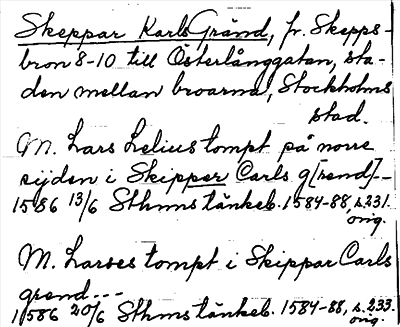 Skeppar Karls Gränd, fr. Skepps-
bron 8-10 till Österlånggatan, sta-
den mellan broarna, Stockholms
stad.
M. Lars Leliustompt på norre
sijden i Skipper Carls g[rend]--
1586 13/6 Sthms tänkeb. 1584-88, s.231.
orig.
M. Larses tompt i Skippar Carls
grend---
1586 20/6 Sthms tänkeb. 1584-88, s.233.
orig.